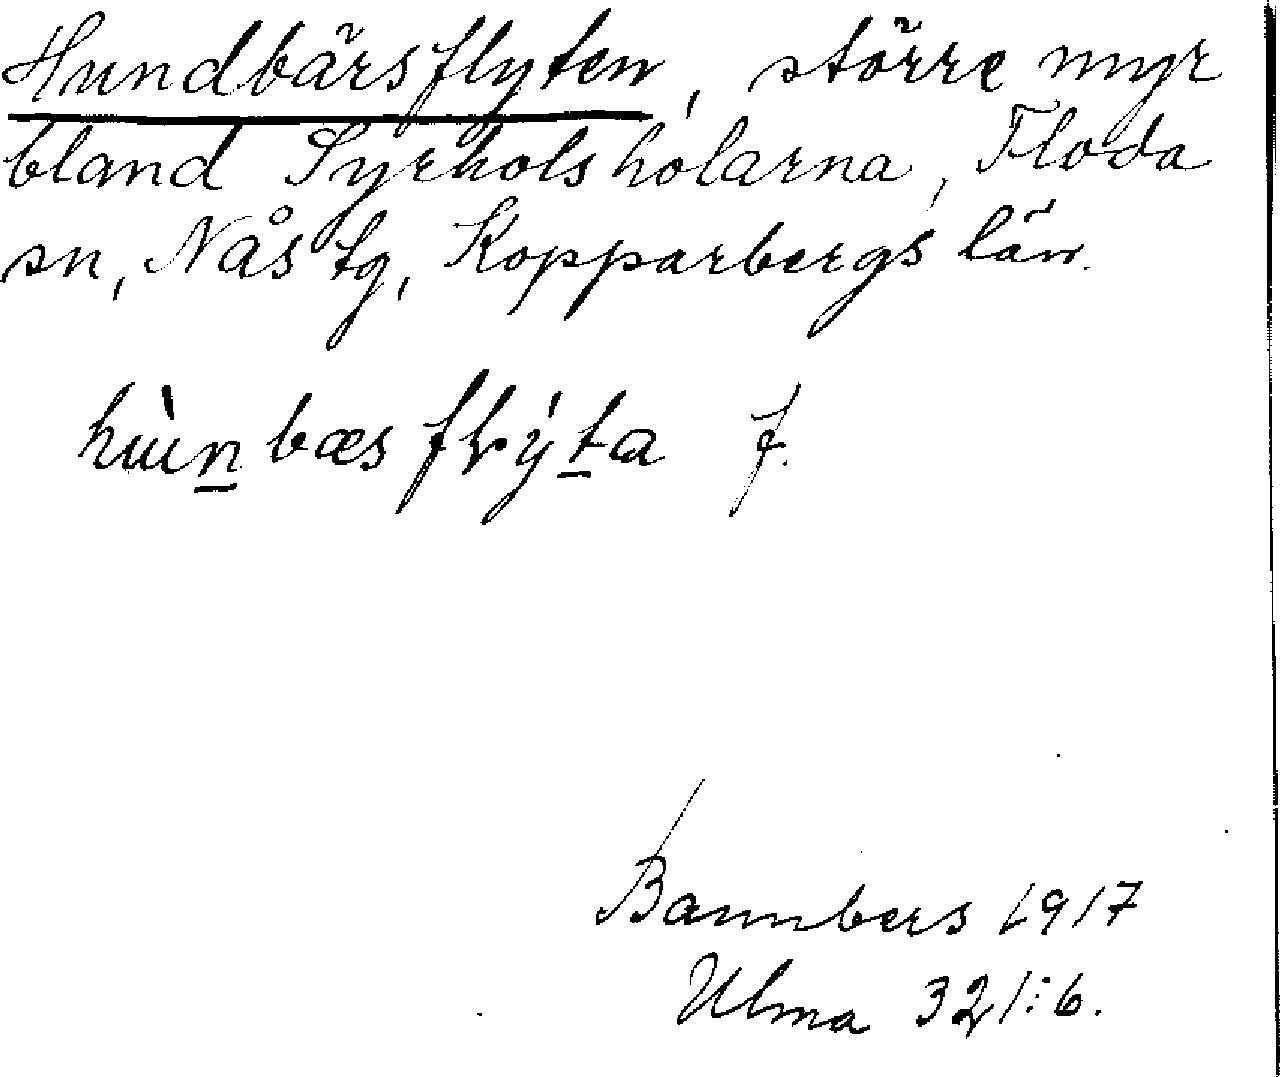 Hundbärsflyten, större myr
bland Syrholsholarna, Floda
sn, Nås tg, Kopparbergs län.
f.
Bannbers 1917
Ulma 321:6.